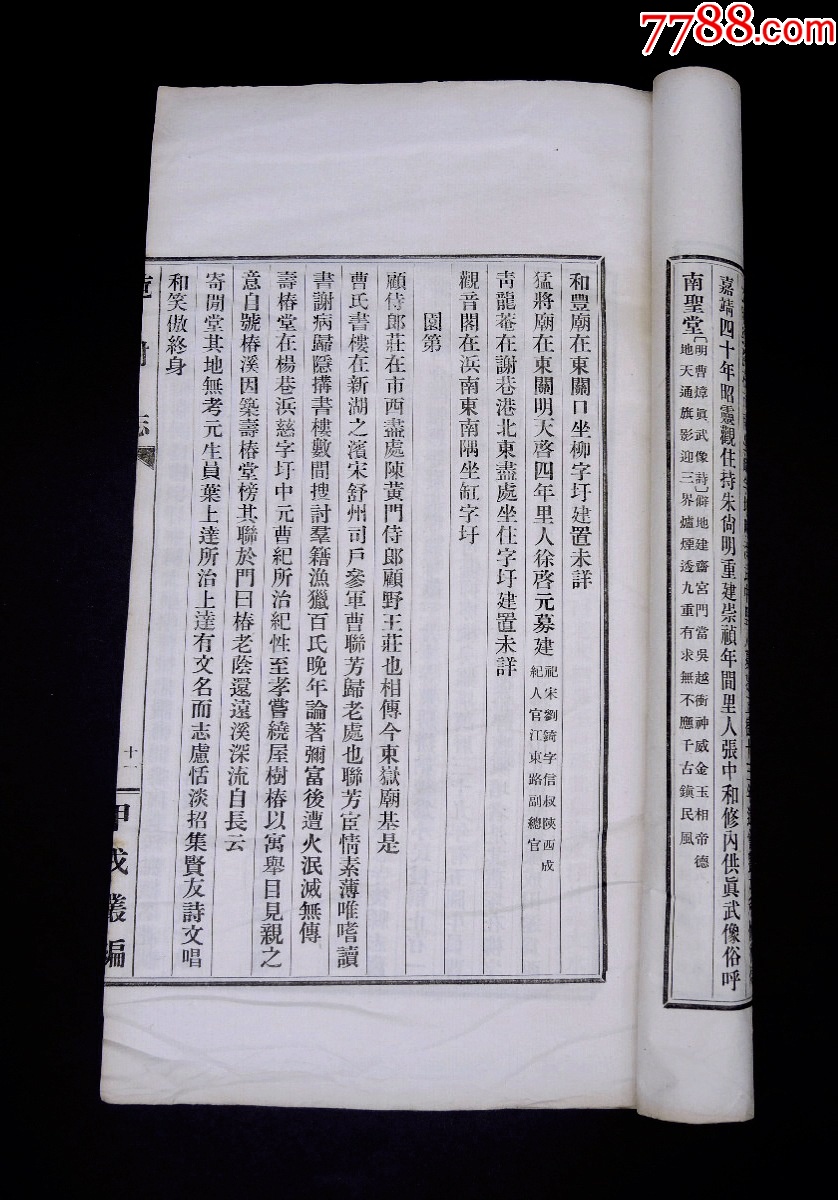 7788.com
嘉靖四十年昭靈觀住持朱尙明重建崇禎年間里人張中和修內供眞武像俗呼
南聖堂〔明曹煒眞武像詩〕僻地建齋宮門當吳越衝神威金玉相帝德
地天通旗影迎三界爐煙透九重有求無不應千古鎭民風
和豐廟在東關口坐柳字圩建置未詳
猛將廟在東關明天啓四年里人徐啓元募建祀宋劉錡字信叔陝西成
紀人官江東路副總官
靑龍菴在謝巷港北東盡處坐住字圩建置未詳
觀音閣在浜南東南隅坐缸字圩
園第
顧侍郎莊在市西盡處陳黃門侍郎顧野王莊也相傳今東嶽廟基是
曹氏書樓在新湖之濱宋舒州司戶參軍曹聯芳歸老處也聯芳宦情素薄唯嗜讀
書謝病歸隱搆書樓數間搜討羣籍漁獵百氏晚年論著彌富後遭火泯滅無傳
壽椿堂在楊巷浜慈字圩中元曹紀所治紀性至孝嘗繞屋樹椿以寓舉目見親之
意自號椿溪因築壽椿堂榜其聯於門曰椿老蔭還遠溪深流自長云
寄閒堂其地無考元生員葉上達所治上達有文名而志慮恬淡招集賢友詩文唱
和笑傲終身
志
十一
甲戌叢編